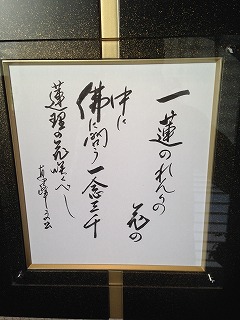 一蓮のれんげの
花の
中に
佛に問う一念三千
蓮理の花咲くべし